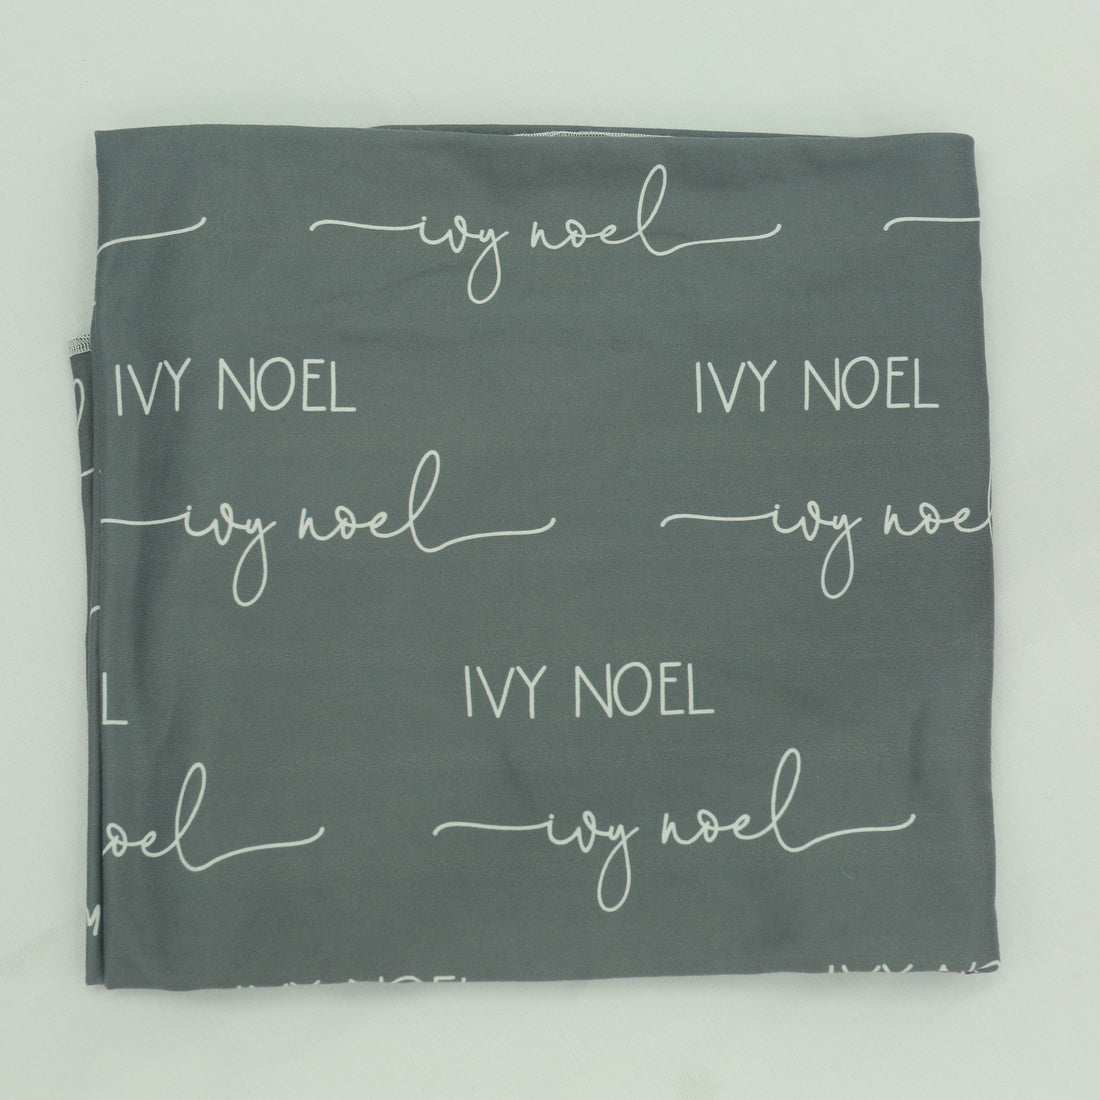 ivy noel
IVY NOEL IVY NOEL
ivy noel ivy noel
L IVY NOEL
oel ivy noel
IVY NOEL IVY NO